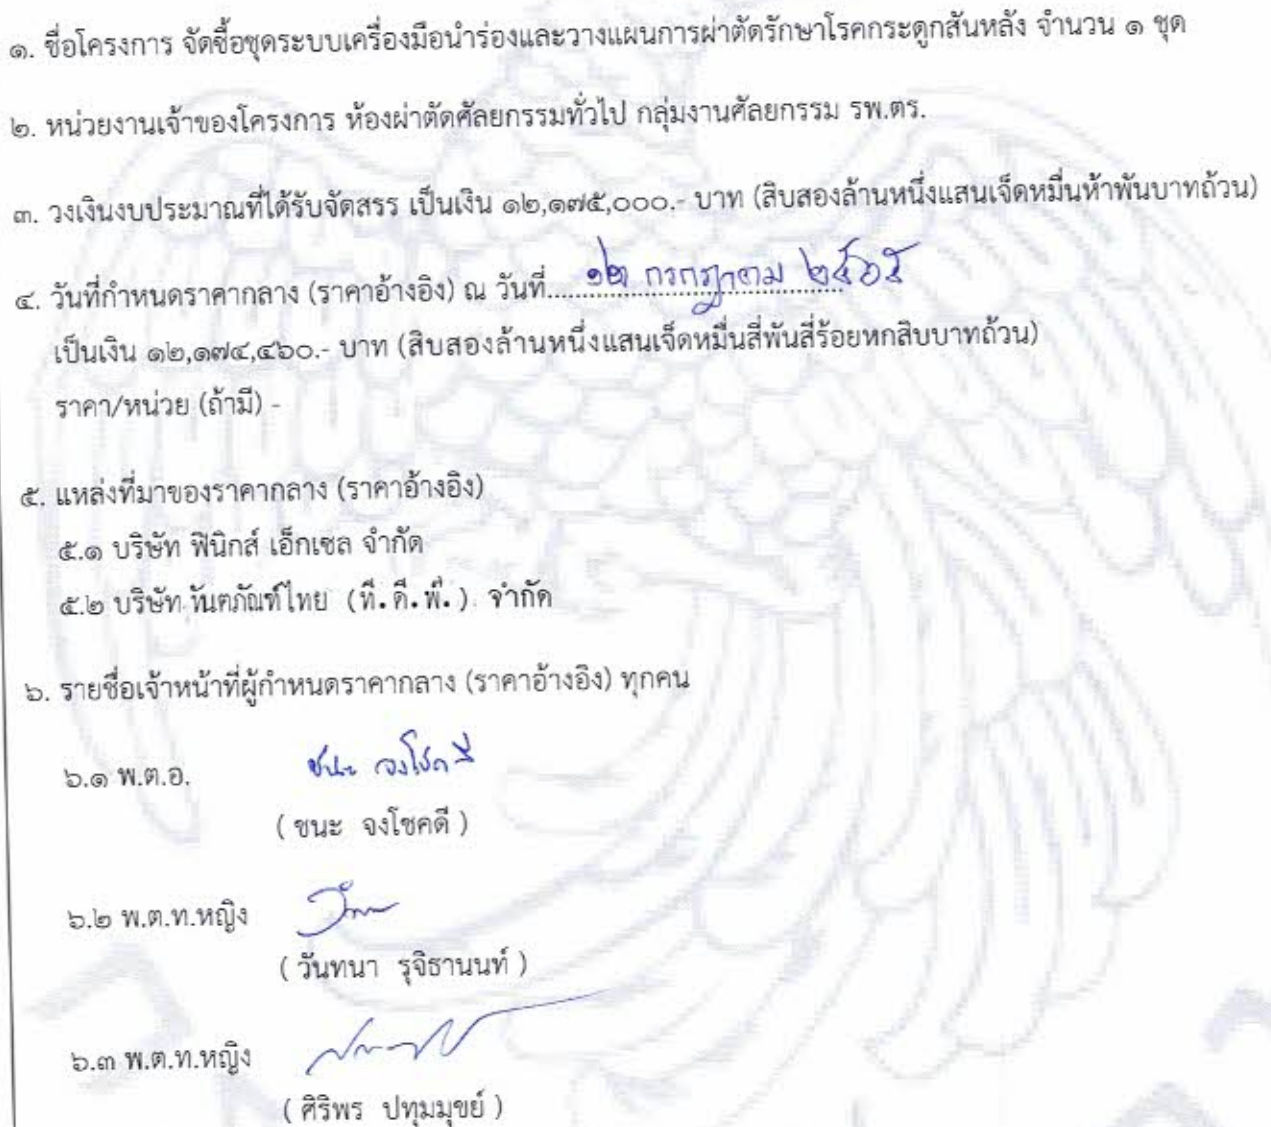 ๑. ชื่อโครงการ จัดซื้อชุดระบบเครื่องมือนำร่องและวางแผนการผ่าตัดรักษาโรคกระดูกสันหลัง จำนวน ๑ ชุด
๒. หน่วยงานเจ้าของโครงการ ห้องผ่าตัดศัลยกรรมทั่วไป กลุ่มงานศัลยกรรม รพ.ตร.
๓. วงเงินงบประมาณที่ได้รับจัดสรร เป็นเงิน ๑๒,๑๗๕,๐๐๐.- บาท (สิบสองล้านหนึ่งแสนเจ็ดหมื่นห้าพันบาทถ้วน)
๔. วันที่กำหนดราคากลาง (ราคาอ้างอิง) ณ วันที่ ๑๒ กรกฎาคม ๒๕๖๕
เป็นเงิน ๑๒,๑๗๔,๔๖๐.- บาท (สิบสองล้านหนึ่งแสนเจ็ดหมื่นสี่พันสี่ร้อยหกสิบบาทถ้วน)
ราคา/หน่วย (ถ้ามี) -
๕. แหล่งที่มาของราคากลาง (ราคาอ้างอิง)
๕.๑ บริษัท ฟินิกส์ เอ็กเซล จำกัด
๕.๒ บริษัท ทันตภัณฑ์ไทย (ที.ดี.พี.) จำกัด
๖. รายชื่อเจ้าหน้าที่ผู้กำหนดราคากลาง (ราคาอ้างอิง) ทุกคน
๖.๑ พ.ต.อ. ชนะ จงโชคดี
( ชนะ จงโชคดี )
๖.๒ พ.ต.ท.หญิง
( วันทนา รุจิธานนท์ )
๖.๓ พ.ต.ท.หญิง
( ศิริพร ปทุมมุขย์ )